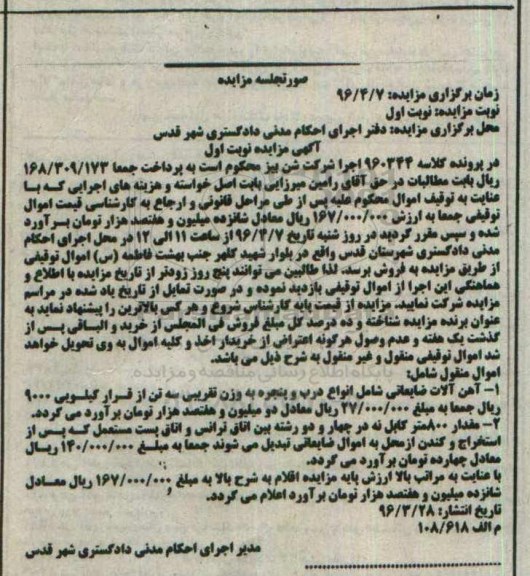 صورتجلسه مزایده
زمان برگزاری مزایده: ۹۶/۴/۷
نوبت مزایده: نوبت اول
محل برگزاری مزایده: دفتر اجرای احکام مدنی دادگستری شهر قدس
آگهی مزایده نوبت اول
در پرونده کلاسه ۹۶۰۳۴۴ اجرا شرکت شن بیز محکوم است به پرداخت جمعا ۱۶۸/۳۰۹/۱۷۳
ریال بابت مطالبات در حق آقای رامین میرزایی بابت اصل خواسته و هزینه های اجرایی که با
عنایت به توقیف اموال محکوم علیه پس از طی مراحل قانونی و ارجاع به کارشناسی قیمت اموال
توقیفی جمعا به ارزش ۱۶۷/۰۰۰/۰۰۰ ریال معادل شانزده میلیون و هفتصد هزار تومان برآورد
شده و سپس مقرر گردید در روز شنبه تاریخ ۹۶/۴/۷ از ساعت ۱۱ الی ۱۲ در محل اجرای احکام
مدنی دادگستری شهرستان قدس واقع در بلوار شهید کلهر جنب بهشت فاطمه (س) اموال توقیفی
از طریق مزایده به فروش برسد. لذا طالبین می توانند پنج روز زودتر از تاریخ مزایده با اطلاع و
هماهنگی این اجرا از اموال توقیفی بازدید نموده و در صورت تمایل از تاریخ یاد شده در مراسم
مزایده شرکت نمایند. مزایده از قیمت پایه کارشناس شروع و هر کس بالاترین را پیشنهاد نماید به
عنوان برنده مزایده شناخته و ده درصد کل مبلغ فروش فی المجلس از خرید و الباقی پس از
گذشت یک هفته و عدم وصول هرگونه اعتراض از خریدار اخذ و کلیه اموال به وی تحویل خواهد
شد اموال توقیفی منقول و غیر منقول به شرح ذیل می باشد.
اموال منقول شامل:
۱- آهن آلات ضایعاتی شامل انواع درب و پنجره به وزن تقریبی سه تن از قرار کیلویی ۹۰۰۰
ریال جمعا به مبلغ ۲۷/۰۰۰/۰۰۰ ریال معادل دو میلیون و هفتصد هزار تومان برآورد می گردد.
۲- مقدار ۸۰۰متر کابل نه در چهار و دو رشته بین اتاق ترانس و اتاق پست مستعمل که پس از
استخراج و کندن ازمحل به اموال ضایعاتی تبدیل می شوند جمعا به مبلغ ۱۴۰/۰۰۰/۰۰۰ ریال
معادل چهارده تومان برآورد می گردد.
با عنایت به مراتب بالا ارزش پایه مزایده اقلام به شرح بالا به مبلغ ۱۶۷/۰۰۰/۰۰۰ ریال معادل
شانزده میلیون و هفتصد هزار تومان برآورد اعلام می گردد.
تاریخ انتشار: ۹۶/۳/۲۸
م الف ۱۰۸/۶۱۸
مدیر اجرای احکام مدنی دادگستری شهر قدس